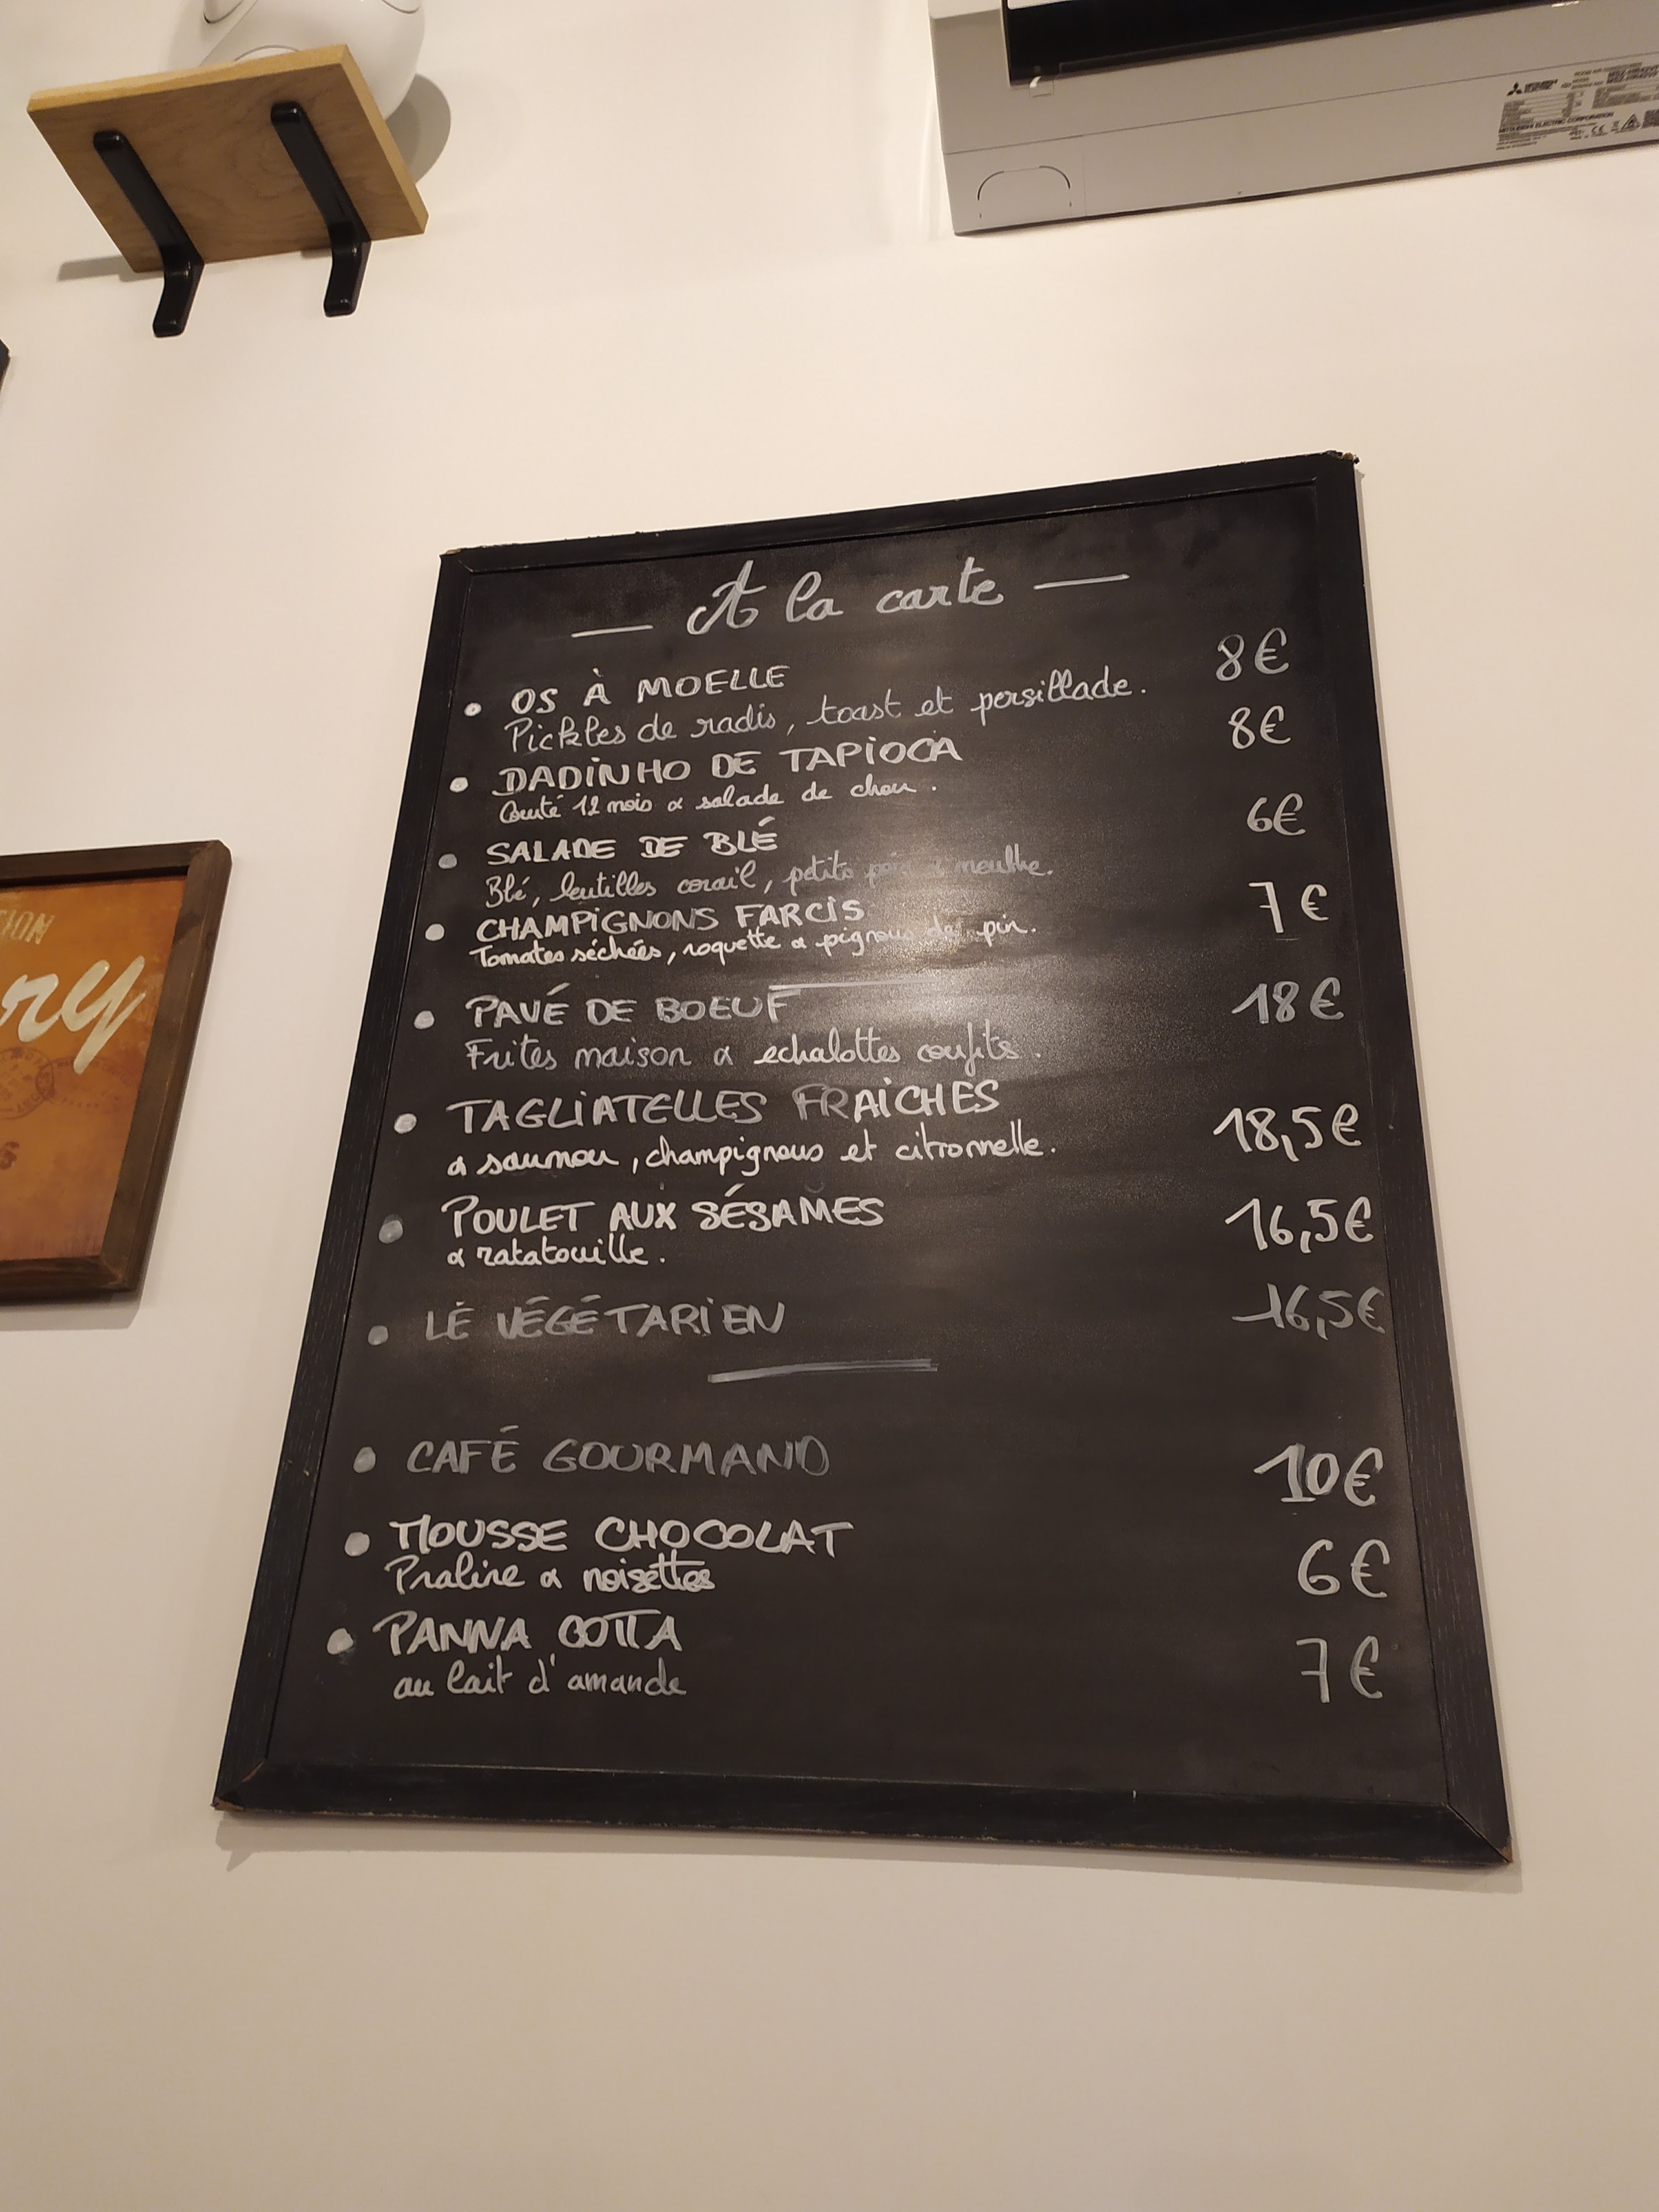 MITSUBISHI ELECTRIC
MITSUBISHI ELECTRIC CORPORATION
— A la carte —
• OS À MOELLE 8€
Pickles de radis, toast et persillade.
• DADINHO DE TAPIOCA 8€
Comté 12 mois & salade de chou.
• SALADE DE BLÉ 6€
Blé, lentilles corail, petits pois & menthe.
• CHAMPIGNONS FARCIS 7€
Tomates séchées, roquette & pignons de pin.
• PAVÉ DE BOEUF 18€
Frites maison & echalottes confits.
• TAGLIATELLES FRAICHES 18,5€
& saumon, champignons et citronnelle.
• POULET AUX SÉSAMES 16,5€
& ratatouille.
• LE VÉGÉTARIEN 16,5€
• CAFÉ GOURMAND 10€
• MOUSSE CHOCOLAT 6€
Praline & noisettes
• PANNA COTTA 7€
au lait d'amande
TION
ry